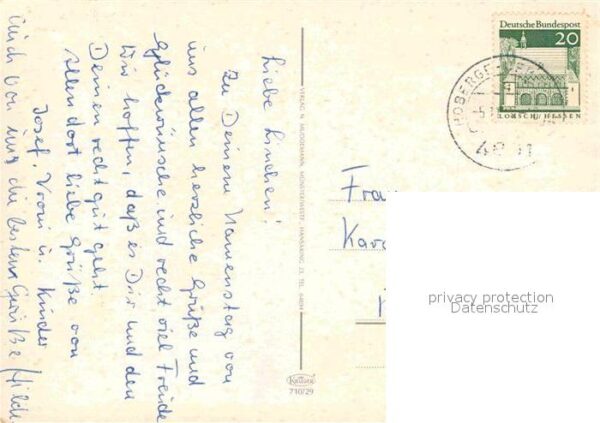 Liebe Linchen!
Zu Deinem Namenstag von
uns allen herzliche Grüße und
Glückwünsche und recht viel Freude
Wir hoffen, daß es Dir und den
Deinen recht gut geht.
Allen dort liebe Grüße von
Josef, Vroni u. Kinder
Auch von uns die besten Grüße
VERLAG N. MUGGEMANN, MÜNSTER/WESTF., HANSARING 23, TEL.
Krüger
710/29
Deutsche Bundespost
20
LORSCH/HESSEN
Frau
privacy protection
Datenschutz